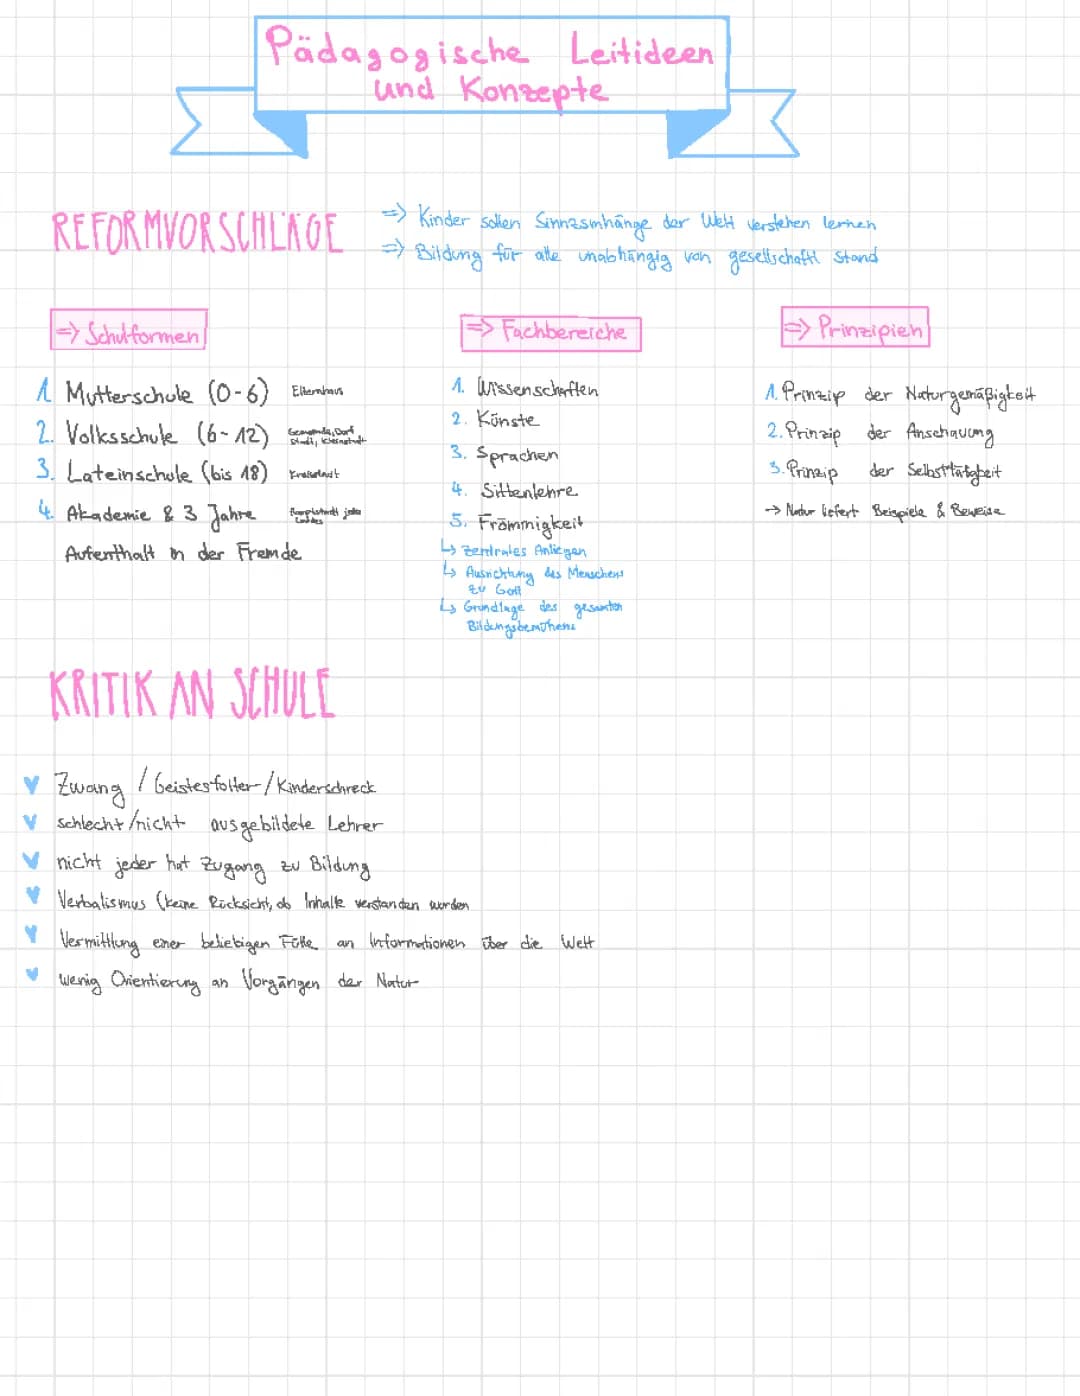 Pädagogische Leitideen
und Konzepte
REFORMVORSCHLÄGE
=> Kinder sollen Sinnzsmhänge der Welt verstehen lernen
=> Bildung für alle unabhängig von gesellschaftl Stand
=> Schulformen
1. Mutterschule (0-6) Elternhaus
2. Volksschule (6-12) Gemeinde, Dorf
Stadt, Kleinstadt
3. Lateinschule (bis 18)
4. Akademie & 3 Jahre Hauptstadt jedes
Landes
Aufenthalt in der Fremde
=> Fachbereiche
1. Wissenschaften
2. Künste
3. Sprachen
4. Sittenlehre
5. Frömmigkeit
↳ zentrales Anliegen
↳ Ausrichtung des Menschen
zu Gott
↳ Grundlage des gesamten
Bildungsbemühens
=> Prinzipien
1. Prinzip der Naturgemäßigkeit
2. Prinzip der Anschauung
3. Prinzip der Selbsttätigkeit
→ Natur liefert Beispiele & Beweise
KRITIK AN SCHULE
♥ Zwang / Geistesfolter / Kinderschreck
♥ schlecht/nicht ausgebildete Lehrer
♥ nicht jeder hat Zugang zu Bildung
♥ Verbalismus (keine Rücksicht, ob Inhalte verstanden wurden
♥ Vermittlung einer beliebigen Fülle an Informationen über die Welt
♥ wenig Orientierung an Vorgängen der Natur